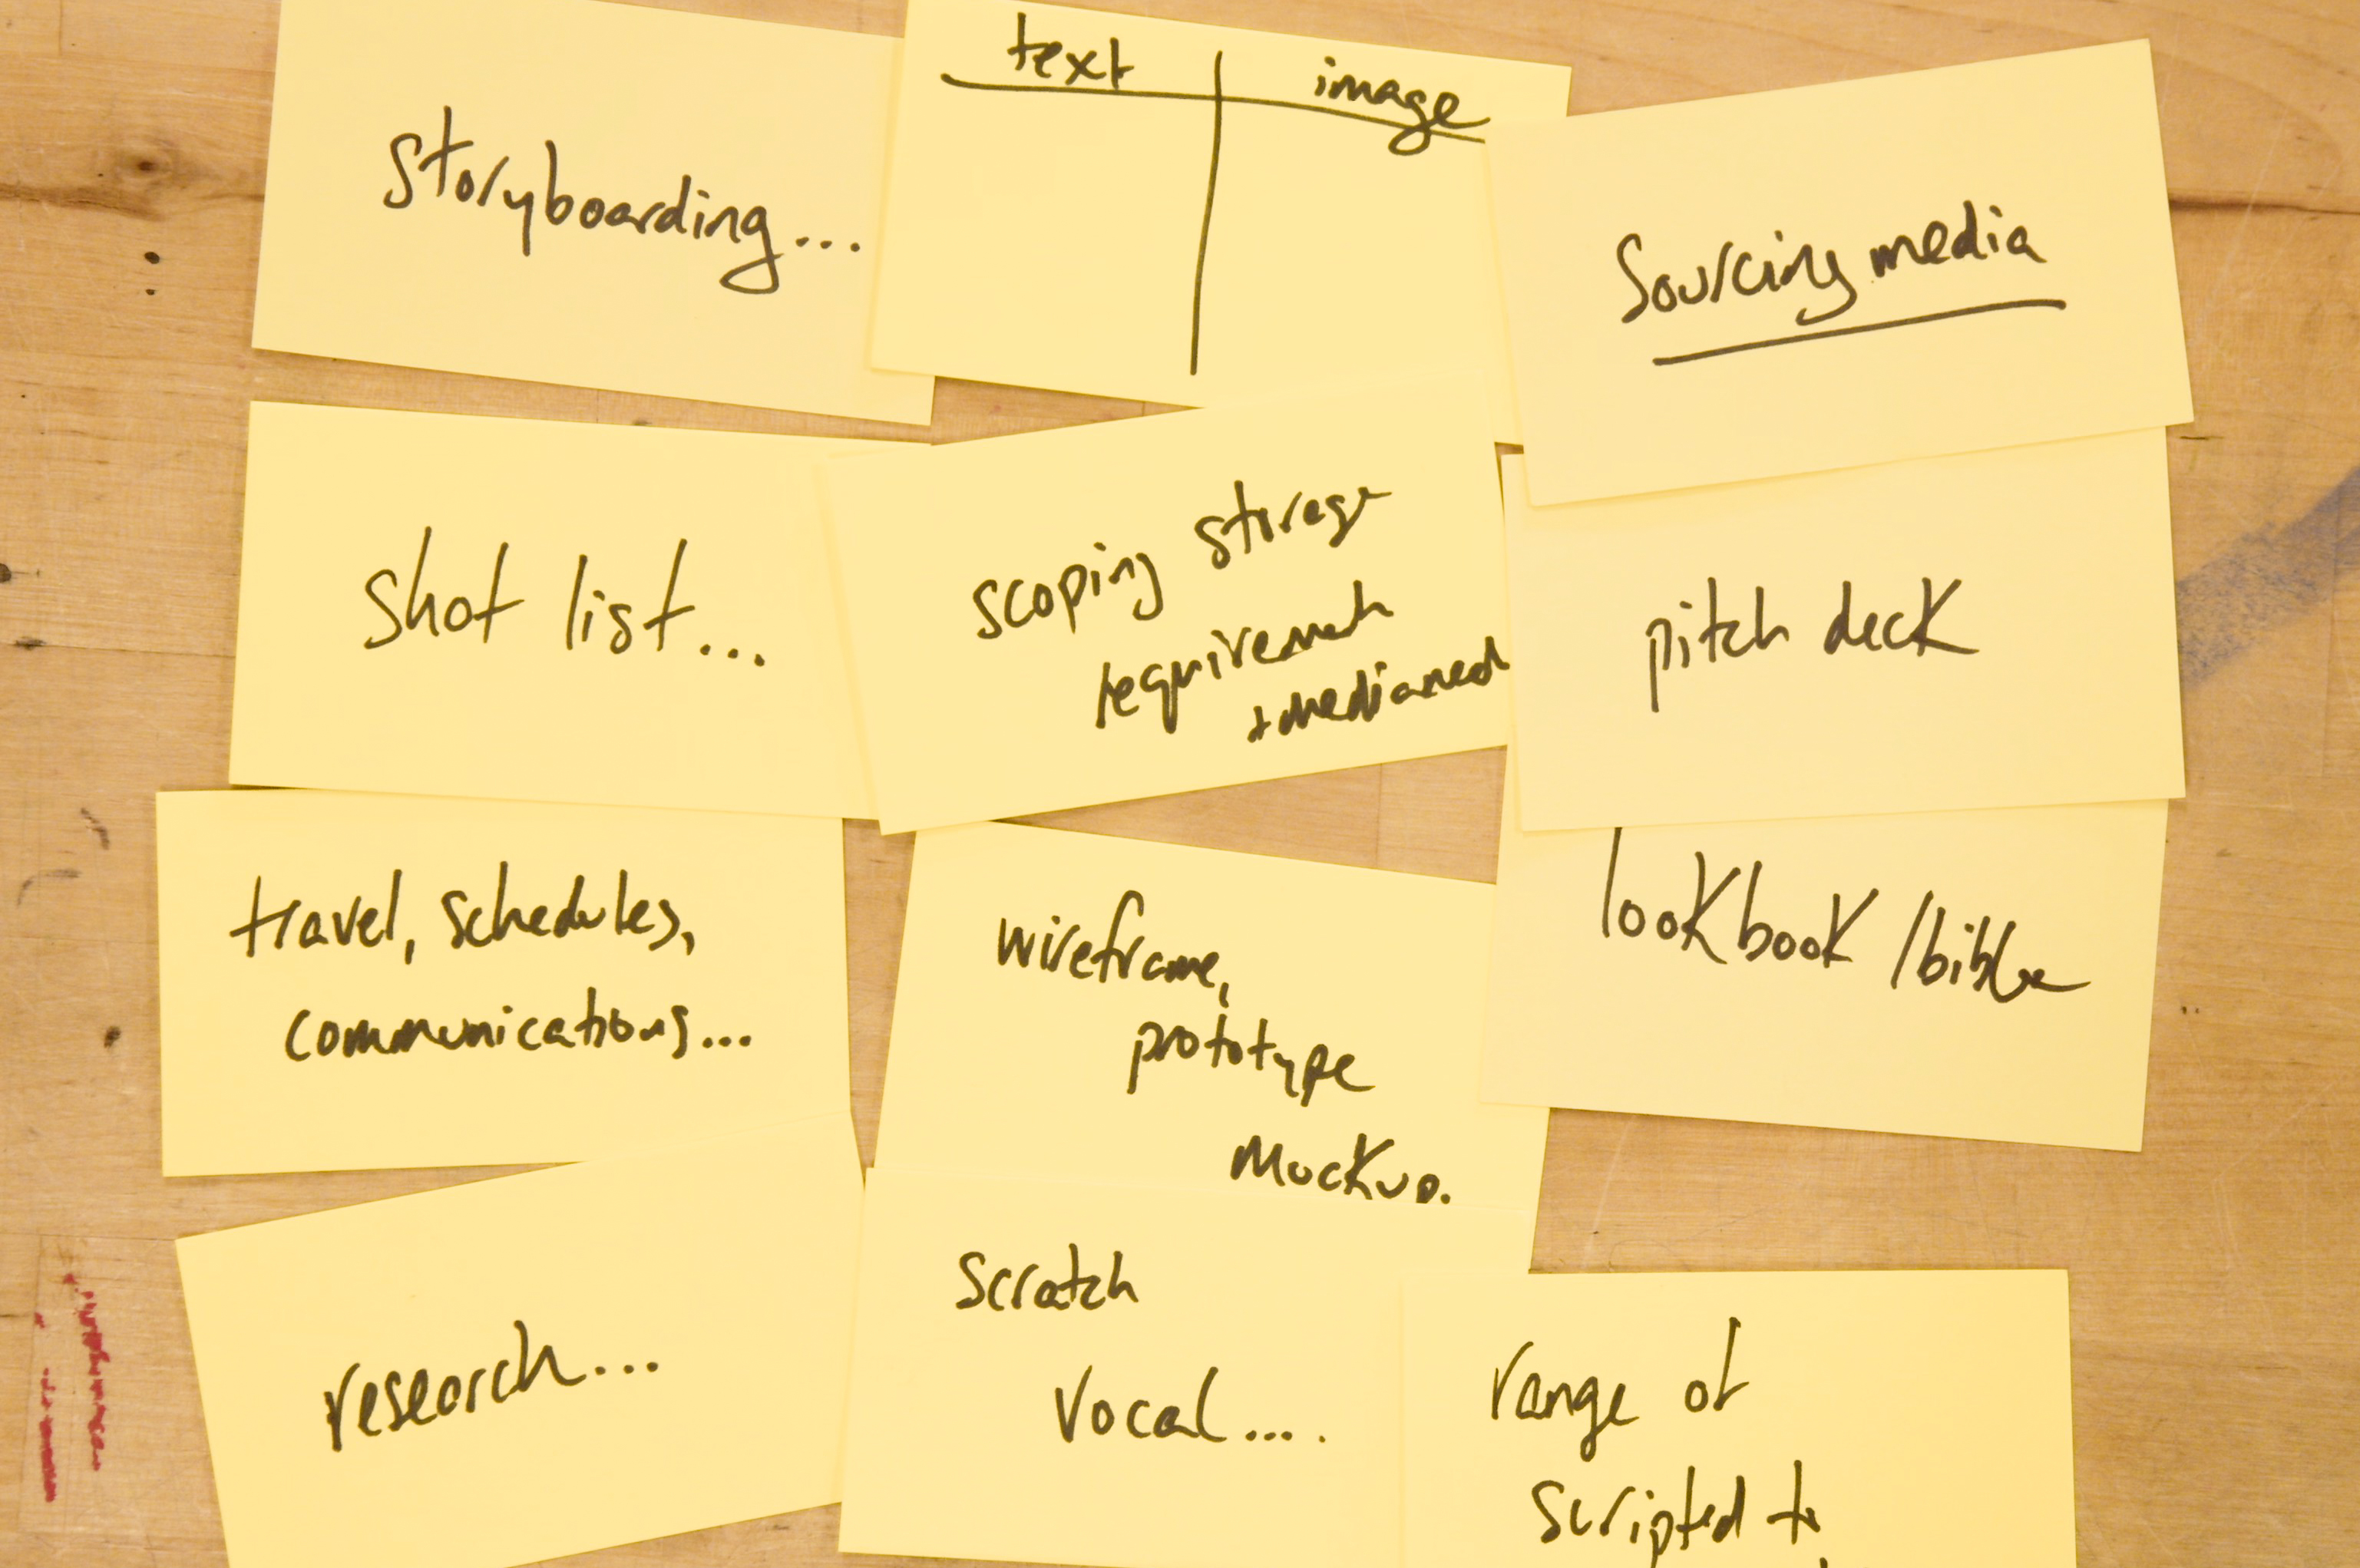 storyboarding...
text | image
Sourcing media
shot list...
scoping storage
requirements
+ media need
pitch deck
travel, schedules,
communications...
wireframe,
prototype
mockup.
lookbook /bible
research...
scratch
vocal....
range of
scripted to